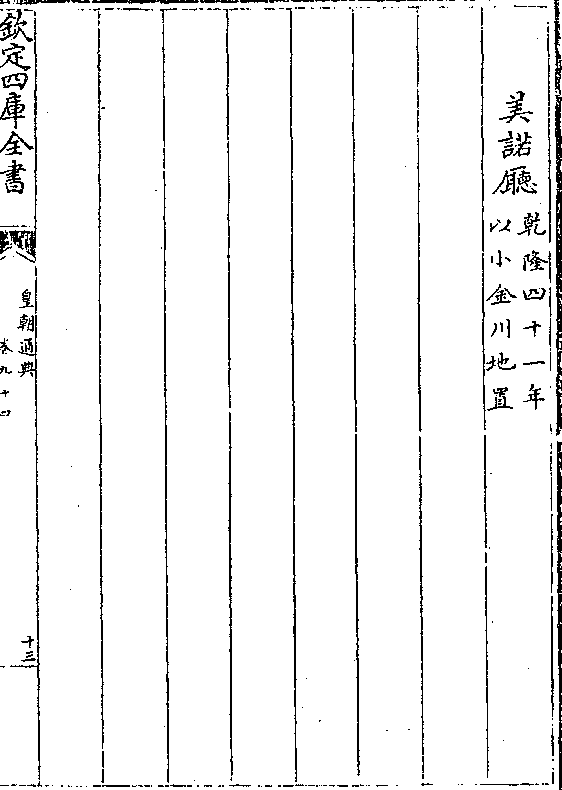 美諾廳乾隆四十一年
以小金川地置
欽定四庫全書
皇朝通典
卷九十四
十三